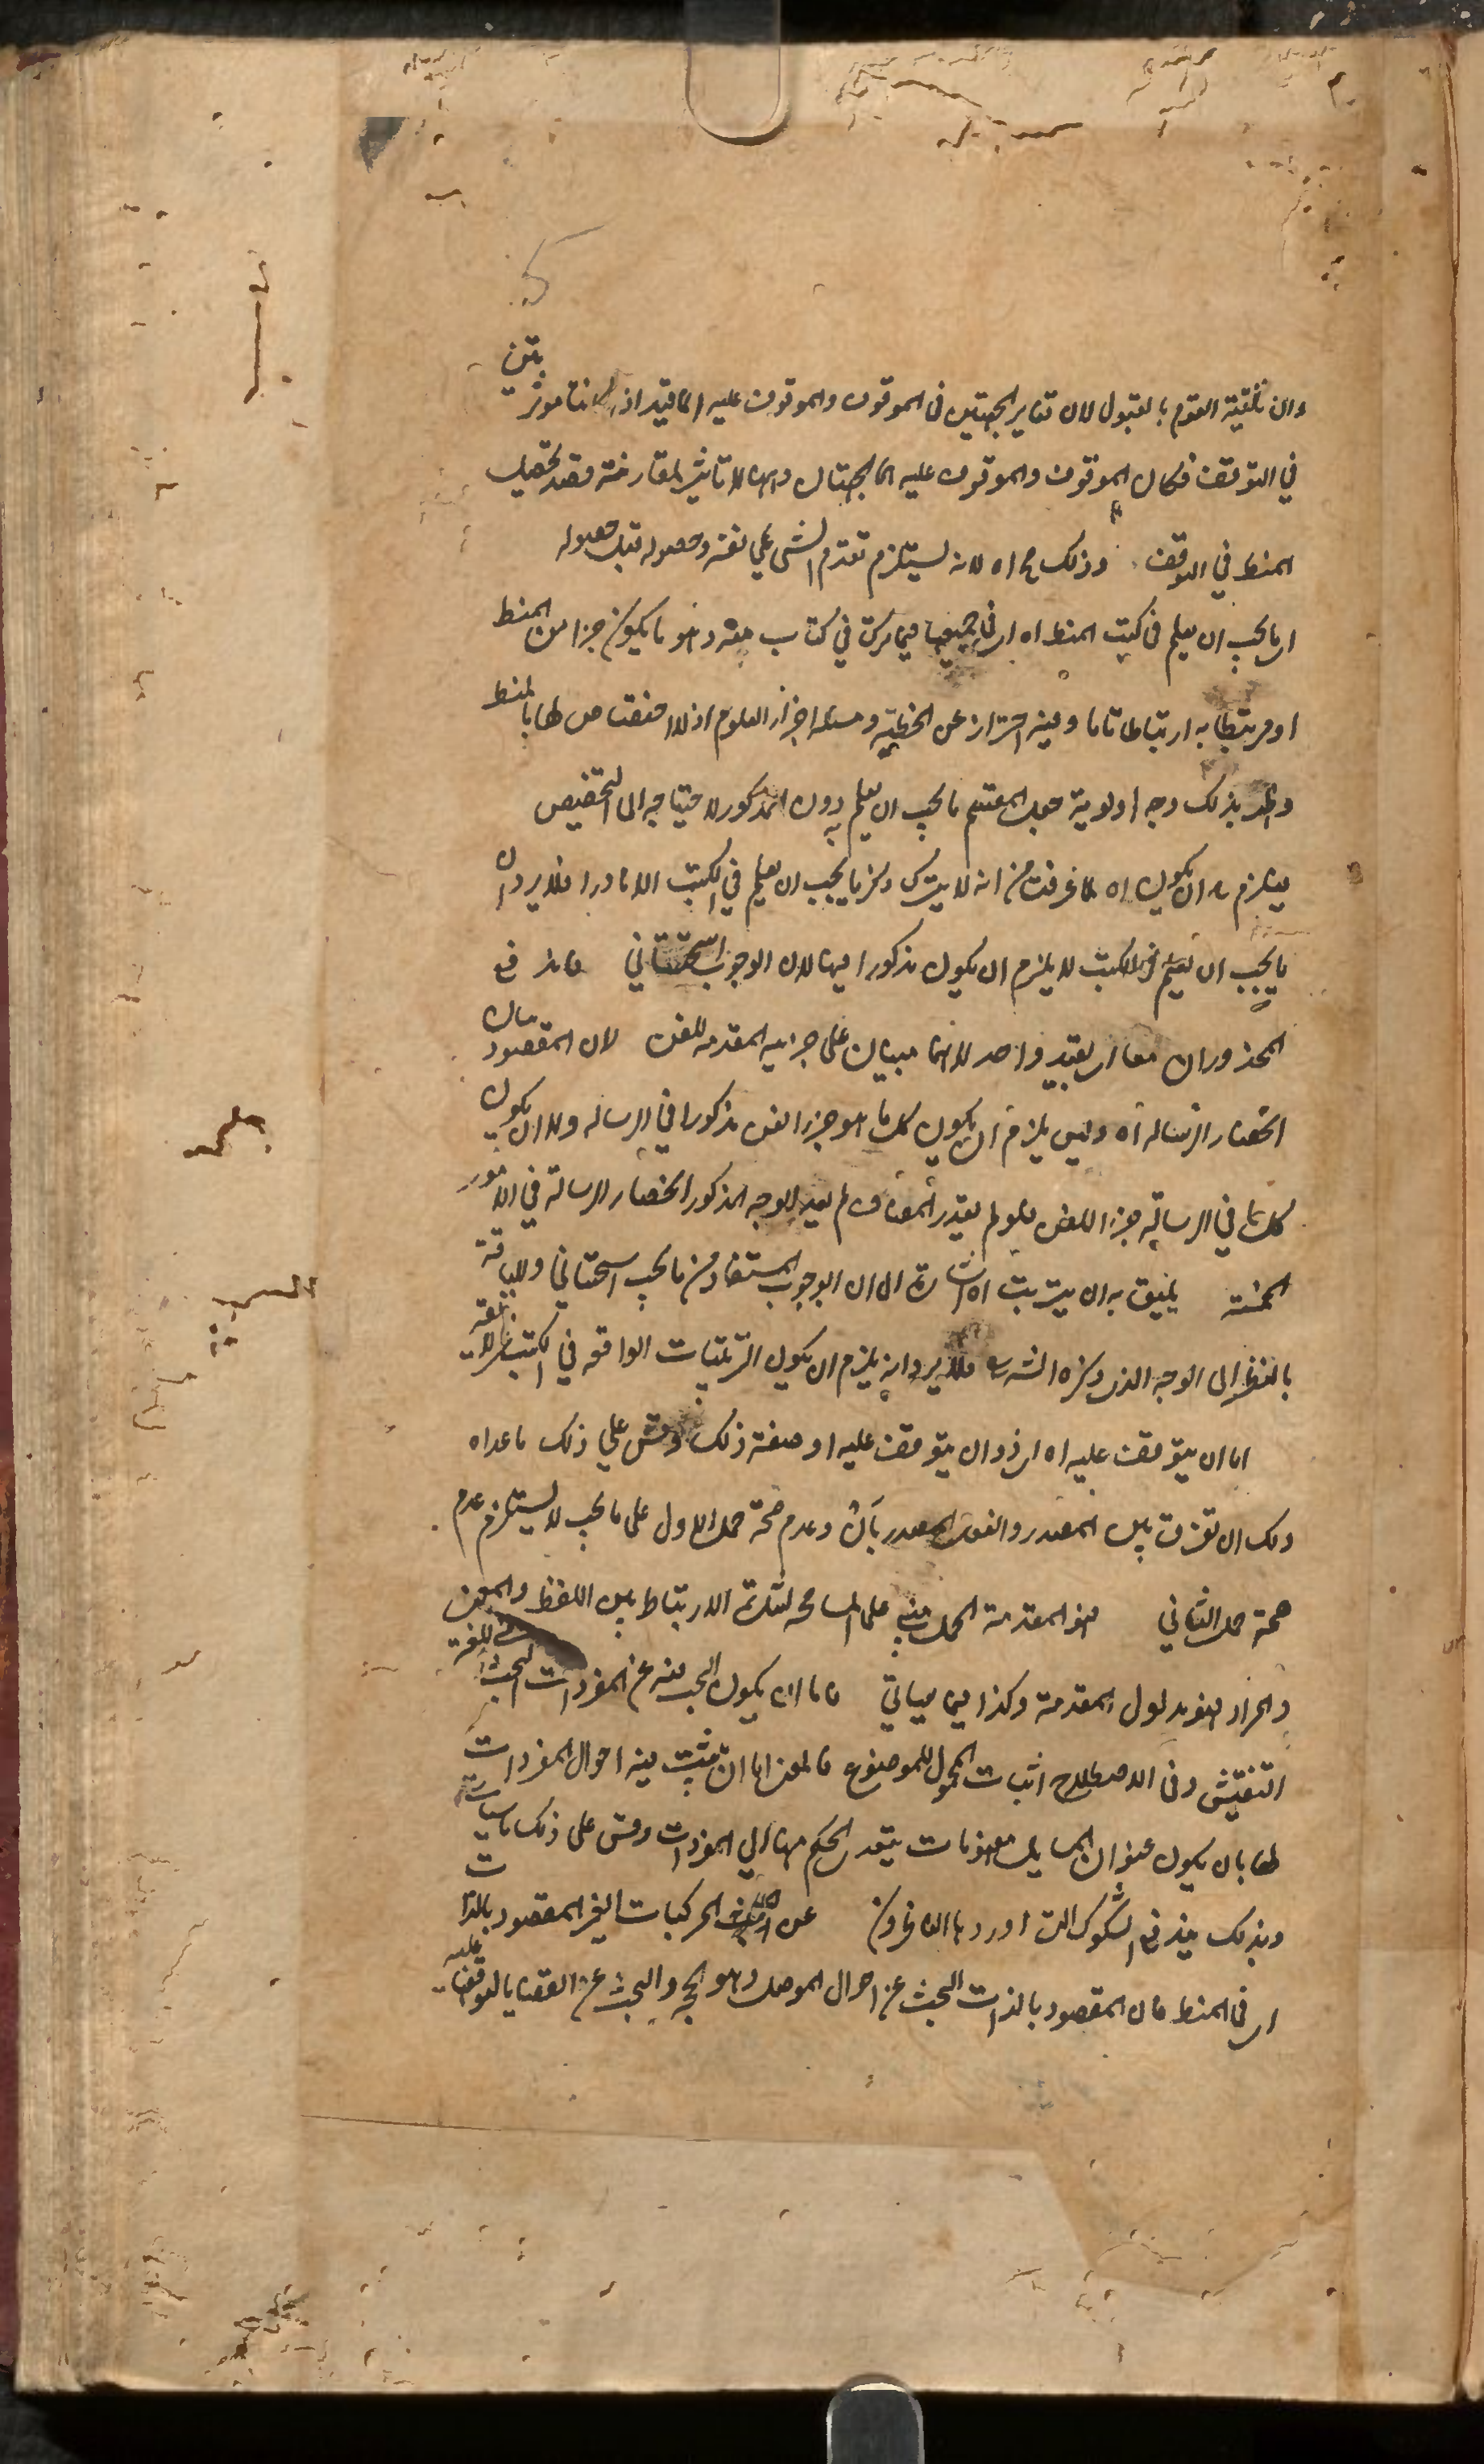 وان تلقيه القوم بالقبول لان تغاير الجهتين في الموقوف والموقوف عليه انما يفيد اذا كانتا موثرتين
في التوقف فكان الموقوف والموقوف عليه انما الجهتان وههنا لا تاثير لمقارنة قصد تحصيل
المنط في التوقف وذلك مح اه لانه يستلزم تقدم الشي علي نفسه وحصوله قبل حصوله
اي ما يجب ان يعلم في كتب المنط اه اي في جميعها فيما في كتاب منه وهو ما يكون جزا من المنط
او مرتبطا به ارتباطا تاما وفيه احتراز عن الخطبة ومسئلة اجزاء العلوم اذ لا اختصاص لها بالمنط
وظهر بذلك وجه اولوية جعل المقسم ما يجب ان يعلم دون المذكور لاحتياجه الى التخصيص
فيلزم ان يكون اه لما عرفت من انه لا يترك ذكر ما يجب ان يعلم في الكتب الا نادرا فلا يرد ان
ما يجب ان يعلم في الكتب لا يلزم ان يكون مذكورا فيها لان الوجوب استحساني فاندفع
المحذوران معا اي بقيد واحد لانهما مبنيان على جزئية المقدمة للفن لان المقصود بيان
انحصار الرسالة اه وليس يلزم ان يكون كل ما هو جزء الفن مذكورا في الرسالة ولا ان يكون
كل ما في الرسالة جزءا للفن فلو لم يقدر المضاف لم يفد الوجه المذكور انحصار الرسالة في الامور
الخمسة يليق به ان يترتب اه اشارة الى ان الوجوب المستفاد من ما يجب استحساني واللياقة
بالنظر الى الوجه الذي ذكره الش فلا يرد انه يلزم ان يكون الترتيبات الواقعة في الكتب غير لايقة
اما ان يتوقف عليه اه اي ذو ان يتوقف عليه او صفته ذلك وقس علي ذلك ما عداه
ولك ان تفرق بين المصدر والفعل المصدر بان وعدم صحة حمل الاول على ما يجب لا يستلزم عدم
صحة حمل الثاني فهو المقدمة الحمل مبني على المسامحة لشدة الارتباط بين اللفظ والمعنى
والمراد فهو مدلول المقدمة وكذا فيما سياتي فاما ان يكون البحث فيه عن المفردات البحث في اللغة
التفتيش وفي الاصطلاح اثبات المحمول للموضوع فالمعنى اما ان يثبت فيه احوال المفردات
لها بان يكون عنوان المسايل مفهومات يتعدى الحكم منها الي المفردات وقس على ذلك ما سياتي
وبذلك يندفع الشكوك التي اوردها الناظرون عن المركبات الغير المقصود بالذات
اي في المنط فان المقصود بالذات البحث عن احوال الموصل وهو الحجة والبحث عن القضايا لتوقفها عليه